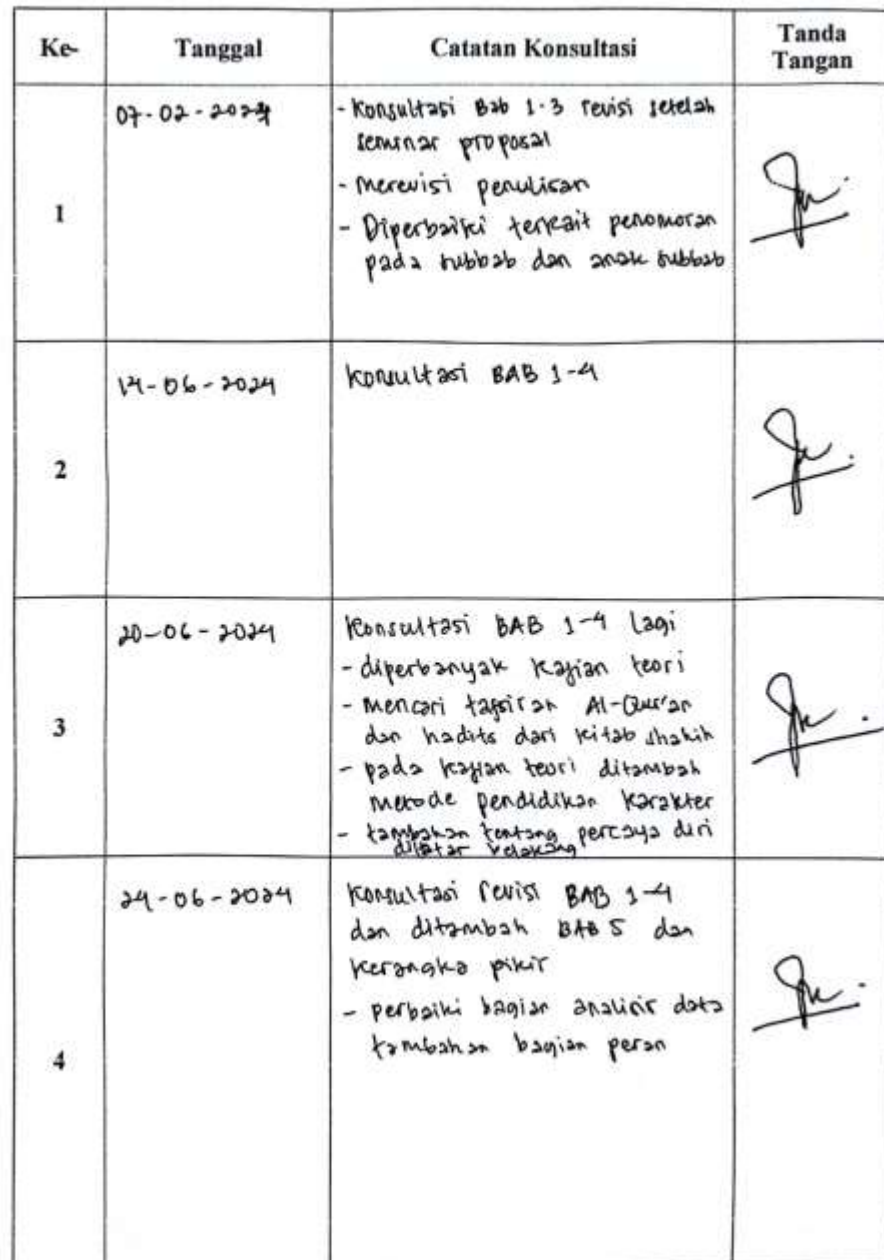 Ke-
Tanggal
Catatan Konsultasi
Tanda
Tangan
1
07-02-2024
- Konsultasi Bab 1-3 revisi setelah
seminar proposal
- Merevisi penulisan
- Diperbaiki terkait penomoran
pada subbab dan anak subbab
2
14-06-2024
Konsultasi BAB 1-4
3
20-06-2024
Konsultasi BAB 1-4 lagi
- diperbanyak kajian teori
- mencari tafsiran Al-Qur'an
dan hadits dari kitab shahih
- pada kajian teori ditambah
metode pendidikan karakter
- tambahan tentang percaya diri
dilatar belakang
4
24-06-2024
Konsultasi revisi BAB 1-4
dan ditambah BAB 5 dan
kerangka pikir
- perbaiki bagian analisis data
tambahan bagian peran